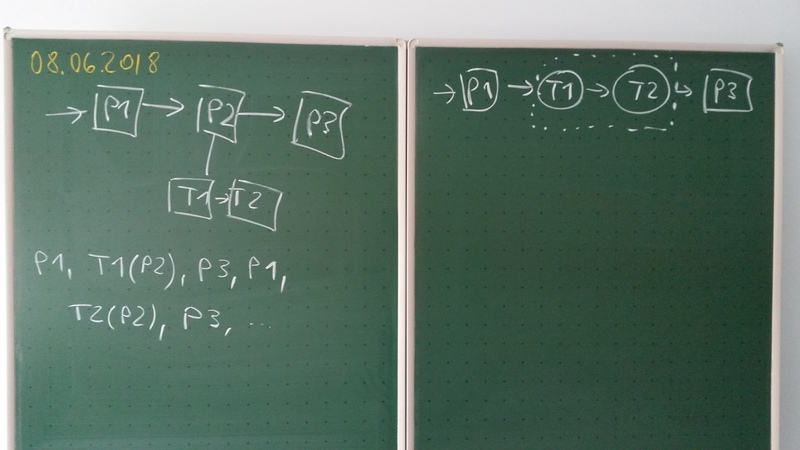 08.06.2018
→ P1 → P2 → P3
T1 → T2
P1, T1(P2), P3, P1,
T2(P2), P3, ...
→ P1 → T1 → T2 → P3